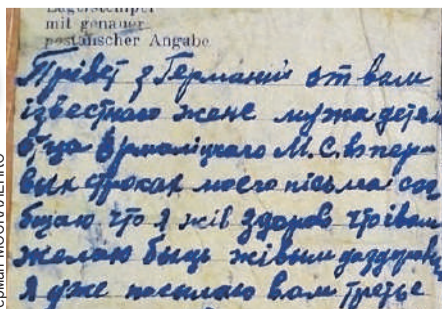 Lagerstempel
mit genauer
postalischer Angabe
Прівет з Германиі от вам
ізвестного жене мужа детям
отца Ермаліцкаго М.С. в пер-
вых строках моего пісьма соо
бщаю что я жів здоров чтоівам
желаю быць жівым даздоровы
Я уже посылаю вам третье